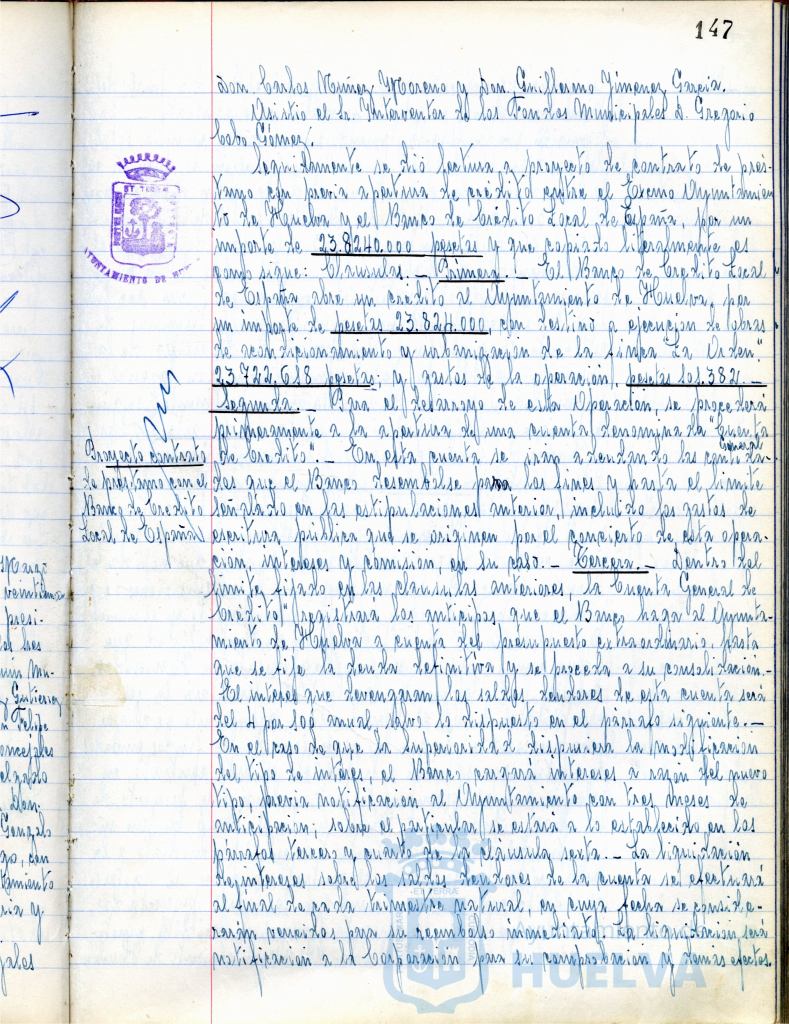 147
Don Carlos Núñez Moreno y Don Guillermo Jimenez Garcia.
Asistió el Sr. Interventor de los Fondos Municipales D. Gregorio
Cobo Gómez.
Seguidamente se dió lectura a proyecto de contrato de prés-
tamo con previa apertura de crédito entre el Excmo Ayuntamien
to de Huelva y el Banco de Crédito Local de España, por un
importe de 23.8240.000 pesetas y que copiado literalmente es
como sigue: Clausulas.- Primera.- El Banco de Credito Local
de España abre un crédito al Ayuntamiento de Huelva, por
un importe de pesetas 23.824.000, con destino a ejecución de obras
de acondicionamiento y urbanización de la finca "La Orden"
23.722.618 pesetas; y gastos de la operación, pesetas 101.382.-
Segunda.- Para el desarroyo de esta Operación, se procederá
primeramente a la apertura de una cuenta denominada "Cuenta
General
de Credito".- En esta cuenta se irán adeudando las cantida-
des que el Banco desembolse para los fines y hasta el limite
señalado en las estipulaciones anterior, incluido los gastos de
escritura pública que se originen por el concierto de esta opera-
ción, intereses y comision, en su caso.- Tercera.- Dentro del
limite fijado en las clausulas anteriores, la Cuenta General de
Credito" registrará los anticipos que el Banco haga al Ayunta-
miento de Huelva a cuenta del presupuesto extraordinario hasta
que se fije la deuda definitiva y se proceda a su consolidación.-
El interés que devengaran los saldos deudores de esta cuenta será
del 4 por 100 anual, salvo lo dispuesto en el párrafo siguiente.-
En el caso de que la Superioridad dispusiera la modificación
del tipo de interés, el Banco cargará intereses a razón del nuevo
tipo, previa notificación al Ayuntamiento con tres meses de
anticipación; sobre el particular se estará a lo establecido en los
párrafos tercero y cuarto de la cláusula sexta.- La liquidación
de intereses sobre los saldos deudores de la cuenta se efectuará
al final de cada trimestre natural, en cuya fecha se conside-
raran vencidos para su reembolso inmediato. La liquidación será
notificación a la Corporación para su comprobación y demas efectos.
Proyecto contrato
de préstamo con el
Banco de Crédito
Local de España
AYUNTAMIENTO DE
HUELVA